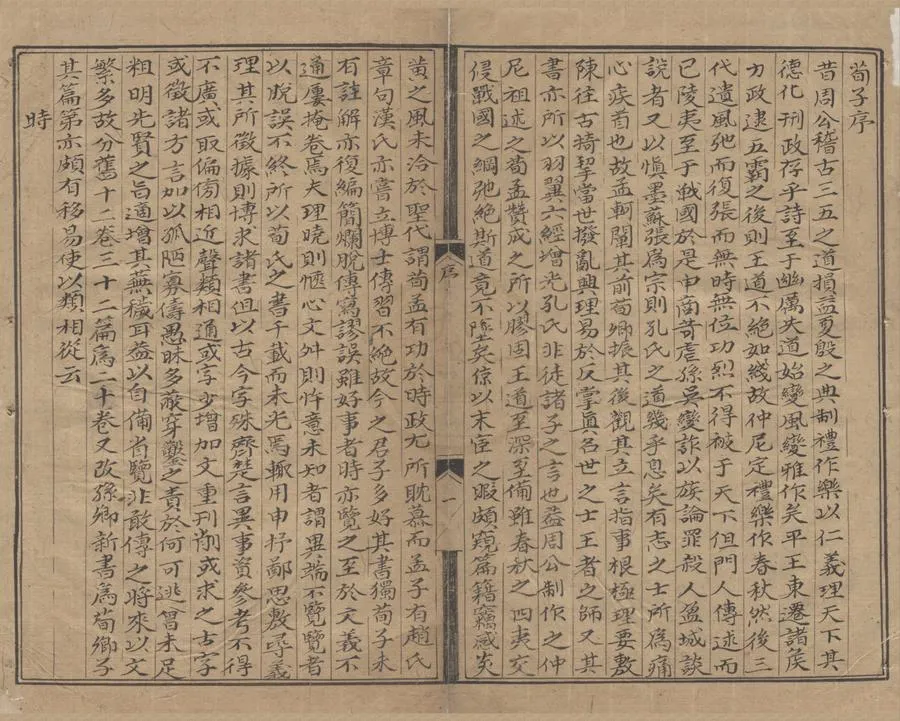 荀子序
昔周公稽古三五之道損益夏殷之典制禮作樂以仁義理天下其
德化刑政存乎詩至于幽厲失道始變風變雅作矣平王東遷諸侯
力政逮五霸之後則王道不絕如綫故仲尼定禮樂作春秋然後三
代遺風弛而復張而無時無位功烈不得被于天下但門人傳述而
已陵夷至于戰國於是申商苛虐孫吳變詐以族論罪殺人盈城談
說者又以慎墨蘇張爲宗則孔氏之道幾乎息矣有志之士所爲痛
心疾首也故孟軻闡其前荀卿振其後觀其立言指事根極理要敷
陳往古掎挈當世撥亂興理易於反掌真名世之士王者之師又其
書亦所以羽翼六經增光孔氏非徒諸子之言也葢周公制作之仲
尼祖述之荀孟贊成之所以膠固王道至深至備雖春秋之四夷交
侵戰國之綱弛絕斯道竟不墜矣倞以末宦之暇頗窺篇籍竊感炎
序
一
黄之風未洽於聖代謂荀孟有功於時政尤所耽慕而孟子有趙氏
章句漢氏亦嘗立博士傳習不絕故今之君子多好其書獨荀子未
有註解亦復編簡爛脫傳寫謬誤雖好事者時亦覽之至於文義不
通屢掩卷焉夫理曉則愜心文舛則忤意未知者謂異端不覽覽者
以脫誤不終所以荀氏之書千載而未光焉輒用申抒鄙思敷尋義
理其所徵據則博求諸書但以古今字殊齊楚言異事資參考不得
不廣或取偏傍相近聲類相通或字少增加文重刊削或求之古字
或徵諸方言加以孤陋寡儔愚昧多蔽穿鑿之責於何可逃曾未足
粗明先賢之旨適增其蕪穢耳葢以自備省覽非敢傳之將來以文
繁多故分舊十二卷三十二篇爲二十卷又改孫卿新書爲荀卿子
其篇第亦頗有移易使以類相從云
時